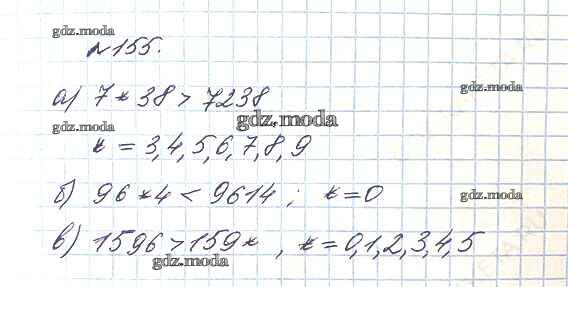 gdz.moda
№155.
gdz.moda
а) 7*38 > 7238
gdz.moda
gdz.moda
* = 3,4,5,6,7,8,9
б) 96*4 < 9614; *=0
gdz.moda
в) 1596>159*, *=0,1,2,3,4,5
gdz.moda